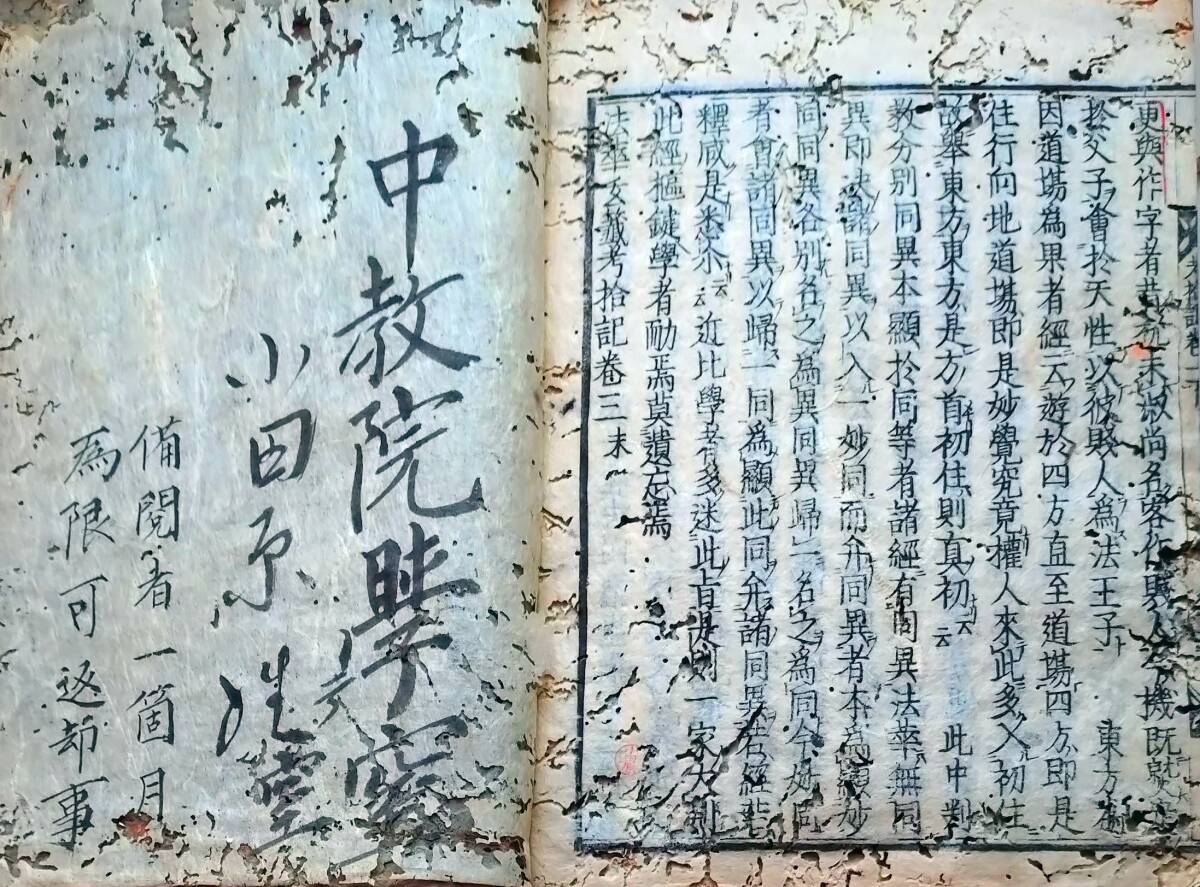 更與作字者昔末尚名客作賤人今機既
於父子會於天性以彼賤人為法王子 東方
因道場為果者經云遊於四方直至道場四方即是
住行向地道場即是妙覺究竟權人來此多入初住
故舉東方東方是方首初住則真初云云 此中對
教分別同異本顯於同等者諸經有同異法華無同
異即決諸同異以入一妙同而弁同異者本為顯妙
同同異各別名之為異同異歸一名之為同今妙同
者會諸同異以歸一同為顯此同弁諸同異若經若
釋咸是悉尓云云近比學者多迷此旨是則一家大判
此經樞鍵學者勵焉莫遺忘焉
法華玄籤考拾記卷三末
中教院學寮
小田原
備閲者一箇月
為限可返却事